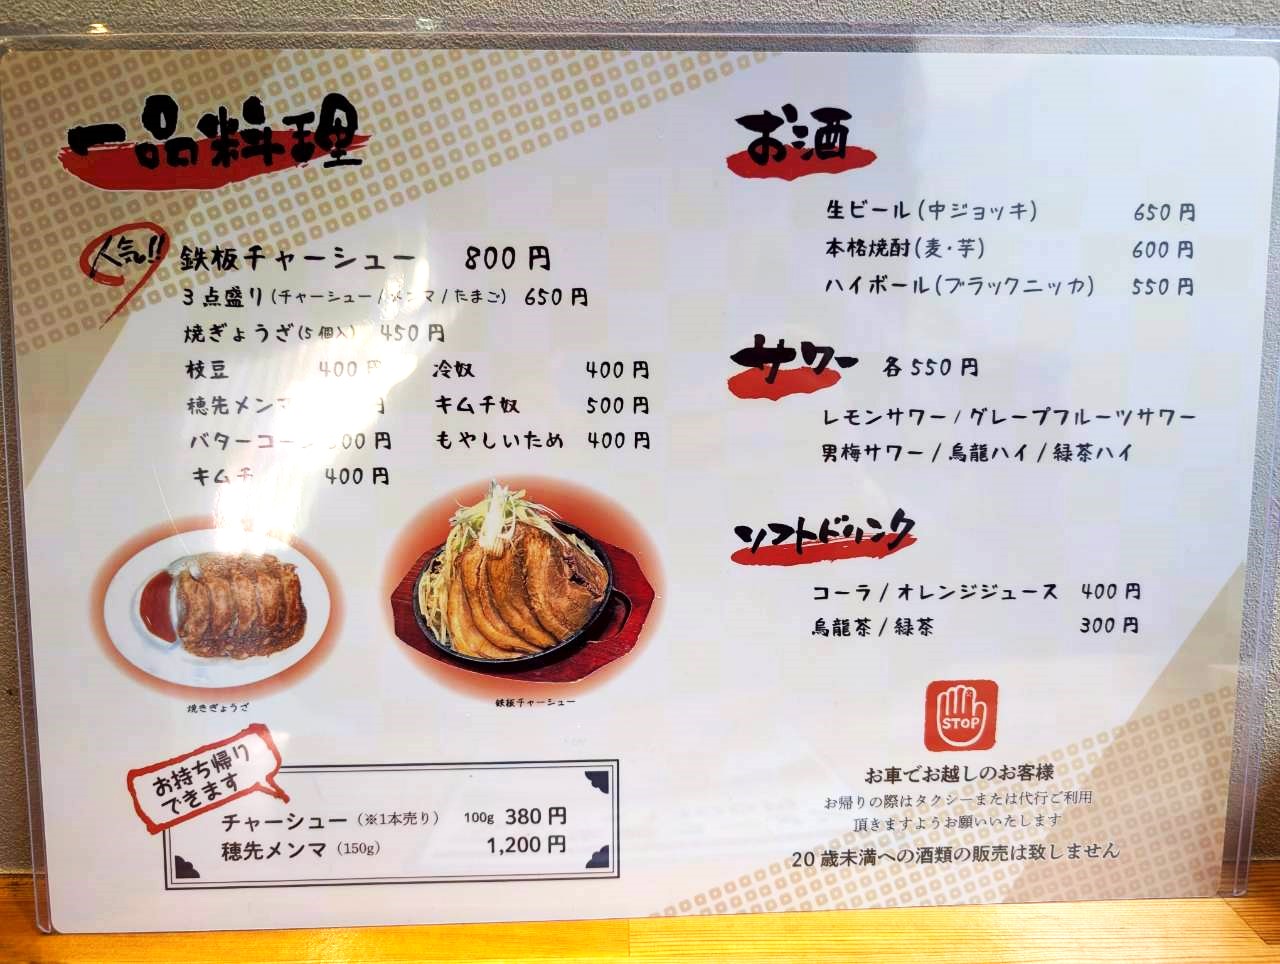 一品料理
人気!!
鉄板チャーシュー 800円
3点盛り(チャーシュー/メンマ/たまご) 650円
焼ぎょうざ(5個入) 450円
枝豆 400円 冷奴 400円
穂先メンマ 円 キムチ奴 500円
バターコーン 00円 もやしいため 400円
キムチ 400円
焼きぎょうざ
鉄板チャーシュー
お持ち帰り
できます
チャーシュー(※1本売り) 100g 380円
穂先メンマ(150g) 1,200円
お酒
生ビール(中ジョッキ) 650円
本格焼酎(麦・芋) 600円
ハイボール(ブラックニッカ) 550円
サワー 各550円
レモンサワー/グレープフルーツサワー
男梅サワー/烏龍ハイ/緑茶ハイ
ソフトドリンク
コーラ/オレンジジュース 400円
烏龍茶/緑茶 300円
STOP
お車でお越しのお客様
お帰りの際はタクシーまたは代行ご利用
頂きますようお願いいたします
20歳未満への酒類の販売は致しません